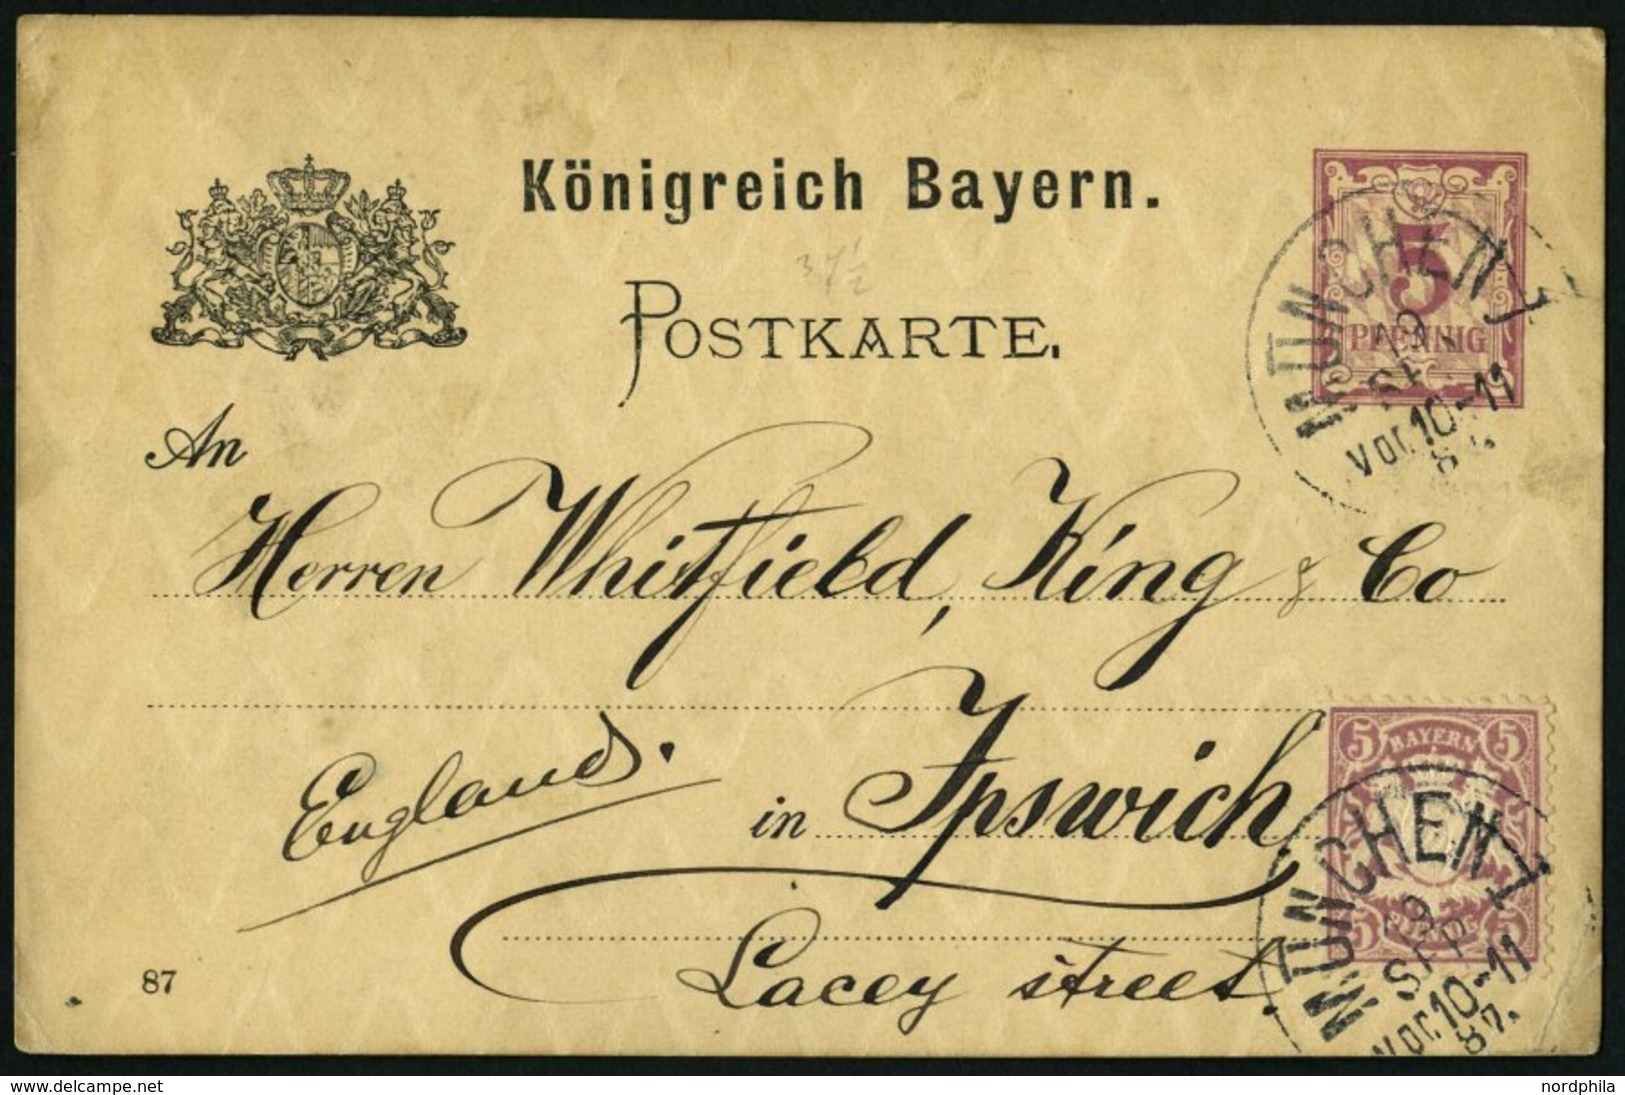 Königreich Bayern.
3 1/2
POSTKARTE.
5
PFENNIG
MÜNCHEN I
9
SEP
Vor. 10-11
87.
An
Herren Whitfield, King & Co
England.
in Ipswich
Lacey street.
5 BAYERN 5
MÜNCHEN I
9
SEP
Vor. 10-11
87.
5 5
87
delcampe.net
nordphila